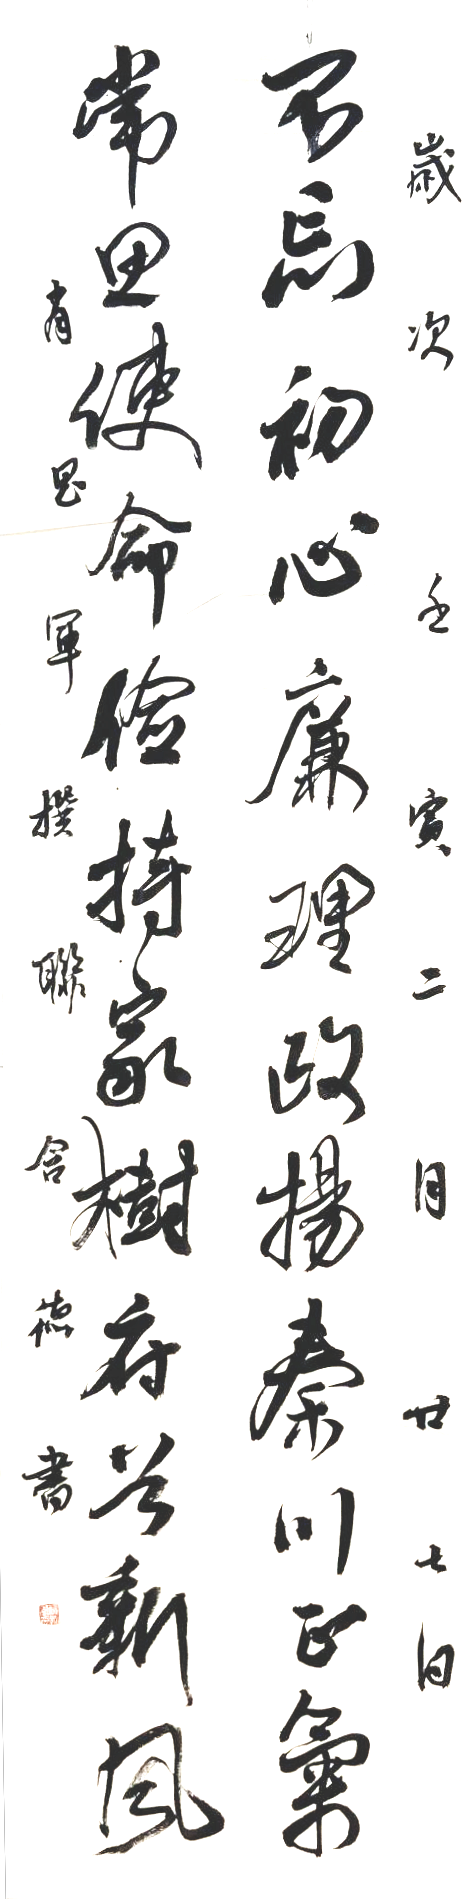 歲次壬寅二月廿七日
不忘初心廉理政揚秦川正氣
常思使命儉持家樹府谷新風
肖思軍撰聯含德書